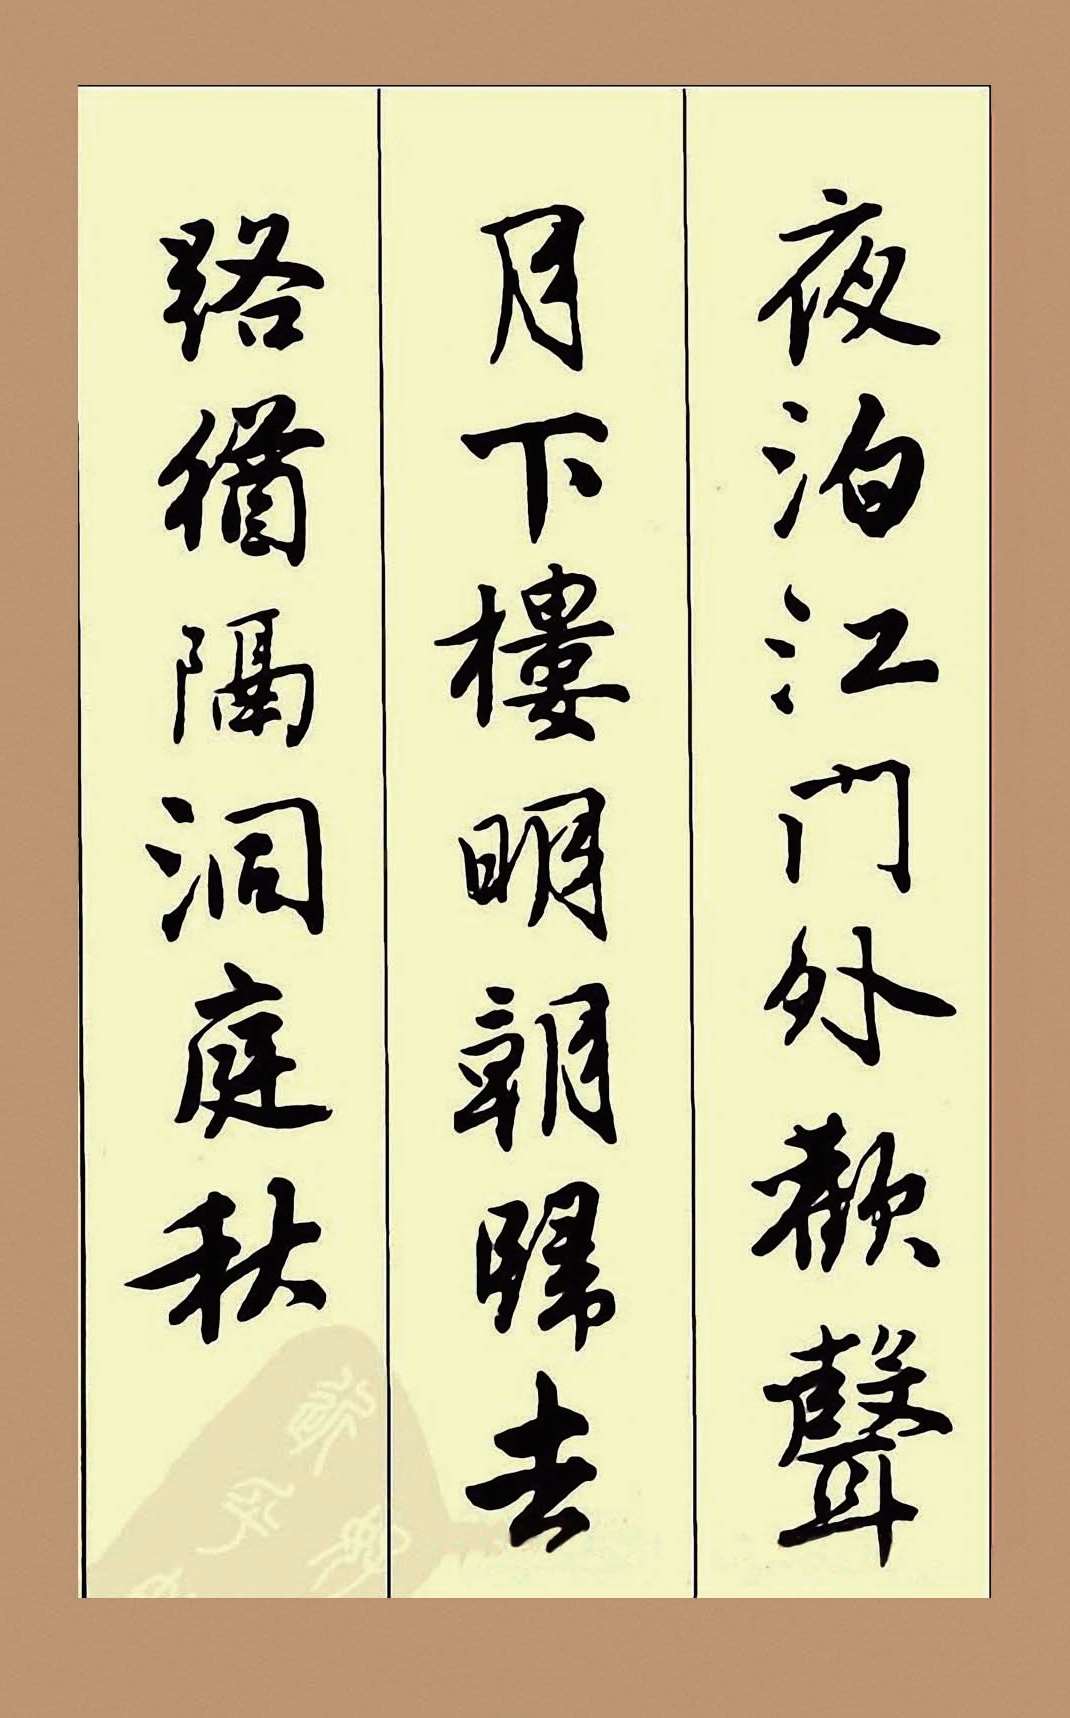 夜泊江门外歡聲
月下樓明朝歸去
路猶隔洞庭秋